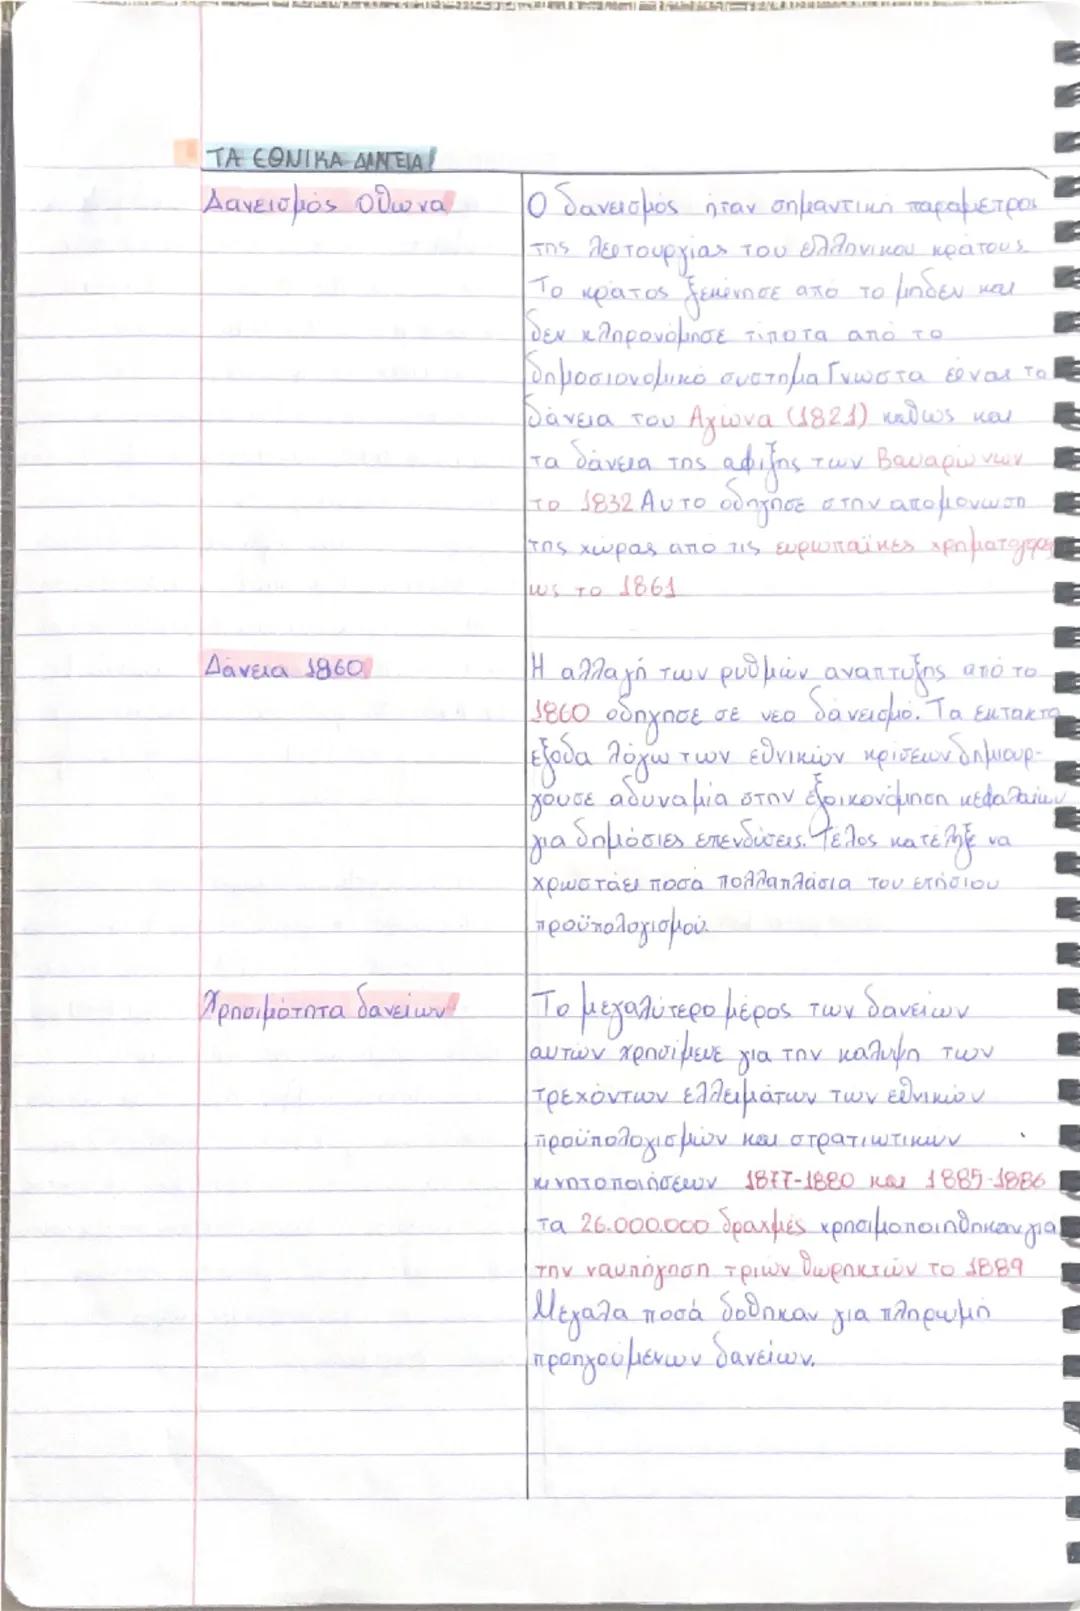 ΤΑ ΕΘΝΙΚΑ ΔΑΝΕΙΑ!
Δανεισμός Οθωνα
Ο δανεισμός ηταν σημαντικη παραμετρος
της λειτουργίας του ελληνικου κρατους
Το κρατος ξεκίνησε από το μηδεν και
δεν κληρονόμησε τιποτα από το
δημοσιονομικό συστημα Γνωστα είναι τα
δάνεια του Αγώνα (1821) καθως και
τα δάνεια της αφιξης των Βαυαρών
το 1832 Αυτο οδηγησε στην απομονωση
της χώρας απο τις ευρωπαϊκες
ως το 1861
Δάνεια 1860
Η αλλαγή των ρυθμών αναπτυξης από το
1860 οδηγησε σε νεο δανεισμό. Τα εκτακτα
εξοδα λόγω των εθνικών κρίσεων δημιουρ-
γουσε αδυναμία στην εξοικονόμηση κεφαλαίων
για δημόσιες επενδύσεις. Τέλος κατέληξε να
χρωστάει ποσά πολλαπλάσια του ετήσιου
προϋπολογισμού.
Χρησιμότητα δανείων
Το μεγαλύτερο μέρος των δανείων
αυτών χρησίμευε για την καλυψη των
τρεχόντων ελλειμάτων των εθνικών
προϋπολογισμών και στρατιωτικων
κινητοποιήσεων 1877-1880 και 1885-1886
τα 26.000.000 δραχμές χρησιμοποιηθηκαν για
την ναυπήγηση τριών θωρηκτών το 1889
Μεγαλα ποσά δοθηκαν για πληρωμή
προηγούμενων δανείων.